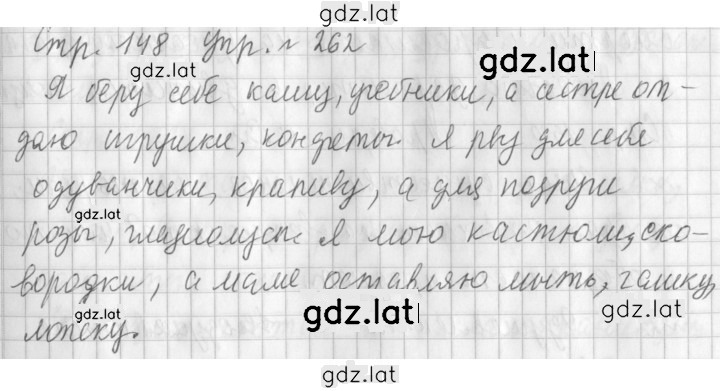 gdz.lat
Стр. 148 упр. № 262
gdz.lat
gdz.lat
Я беру себе кашу, учебники, а сестре от-
даю игрушки, конфеты. Я рву для себя
одуванчики, крапиву, а для подруги
gdz.lat
розы, гладиолусы. Я мою кастюли, ско-
вородки, а маме оставляю мыть, чашку,
gdz.lat
gdz.lat
gdz.lat
ложку.
gdz.lat